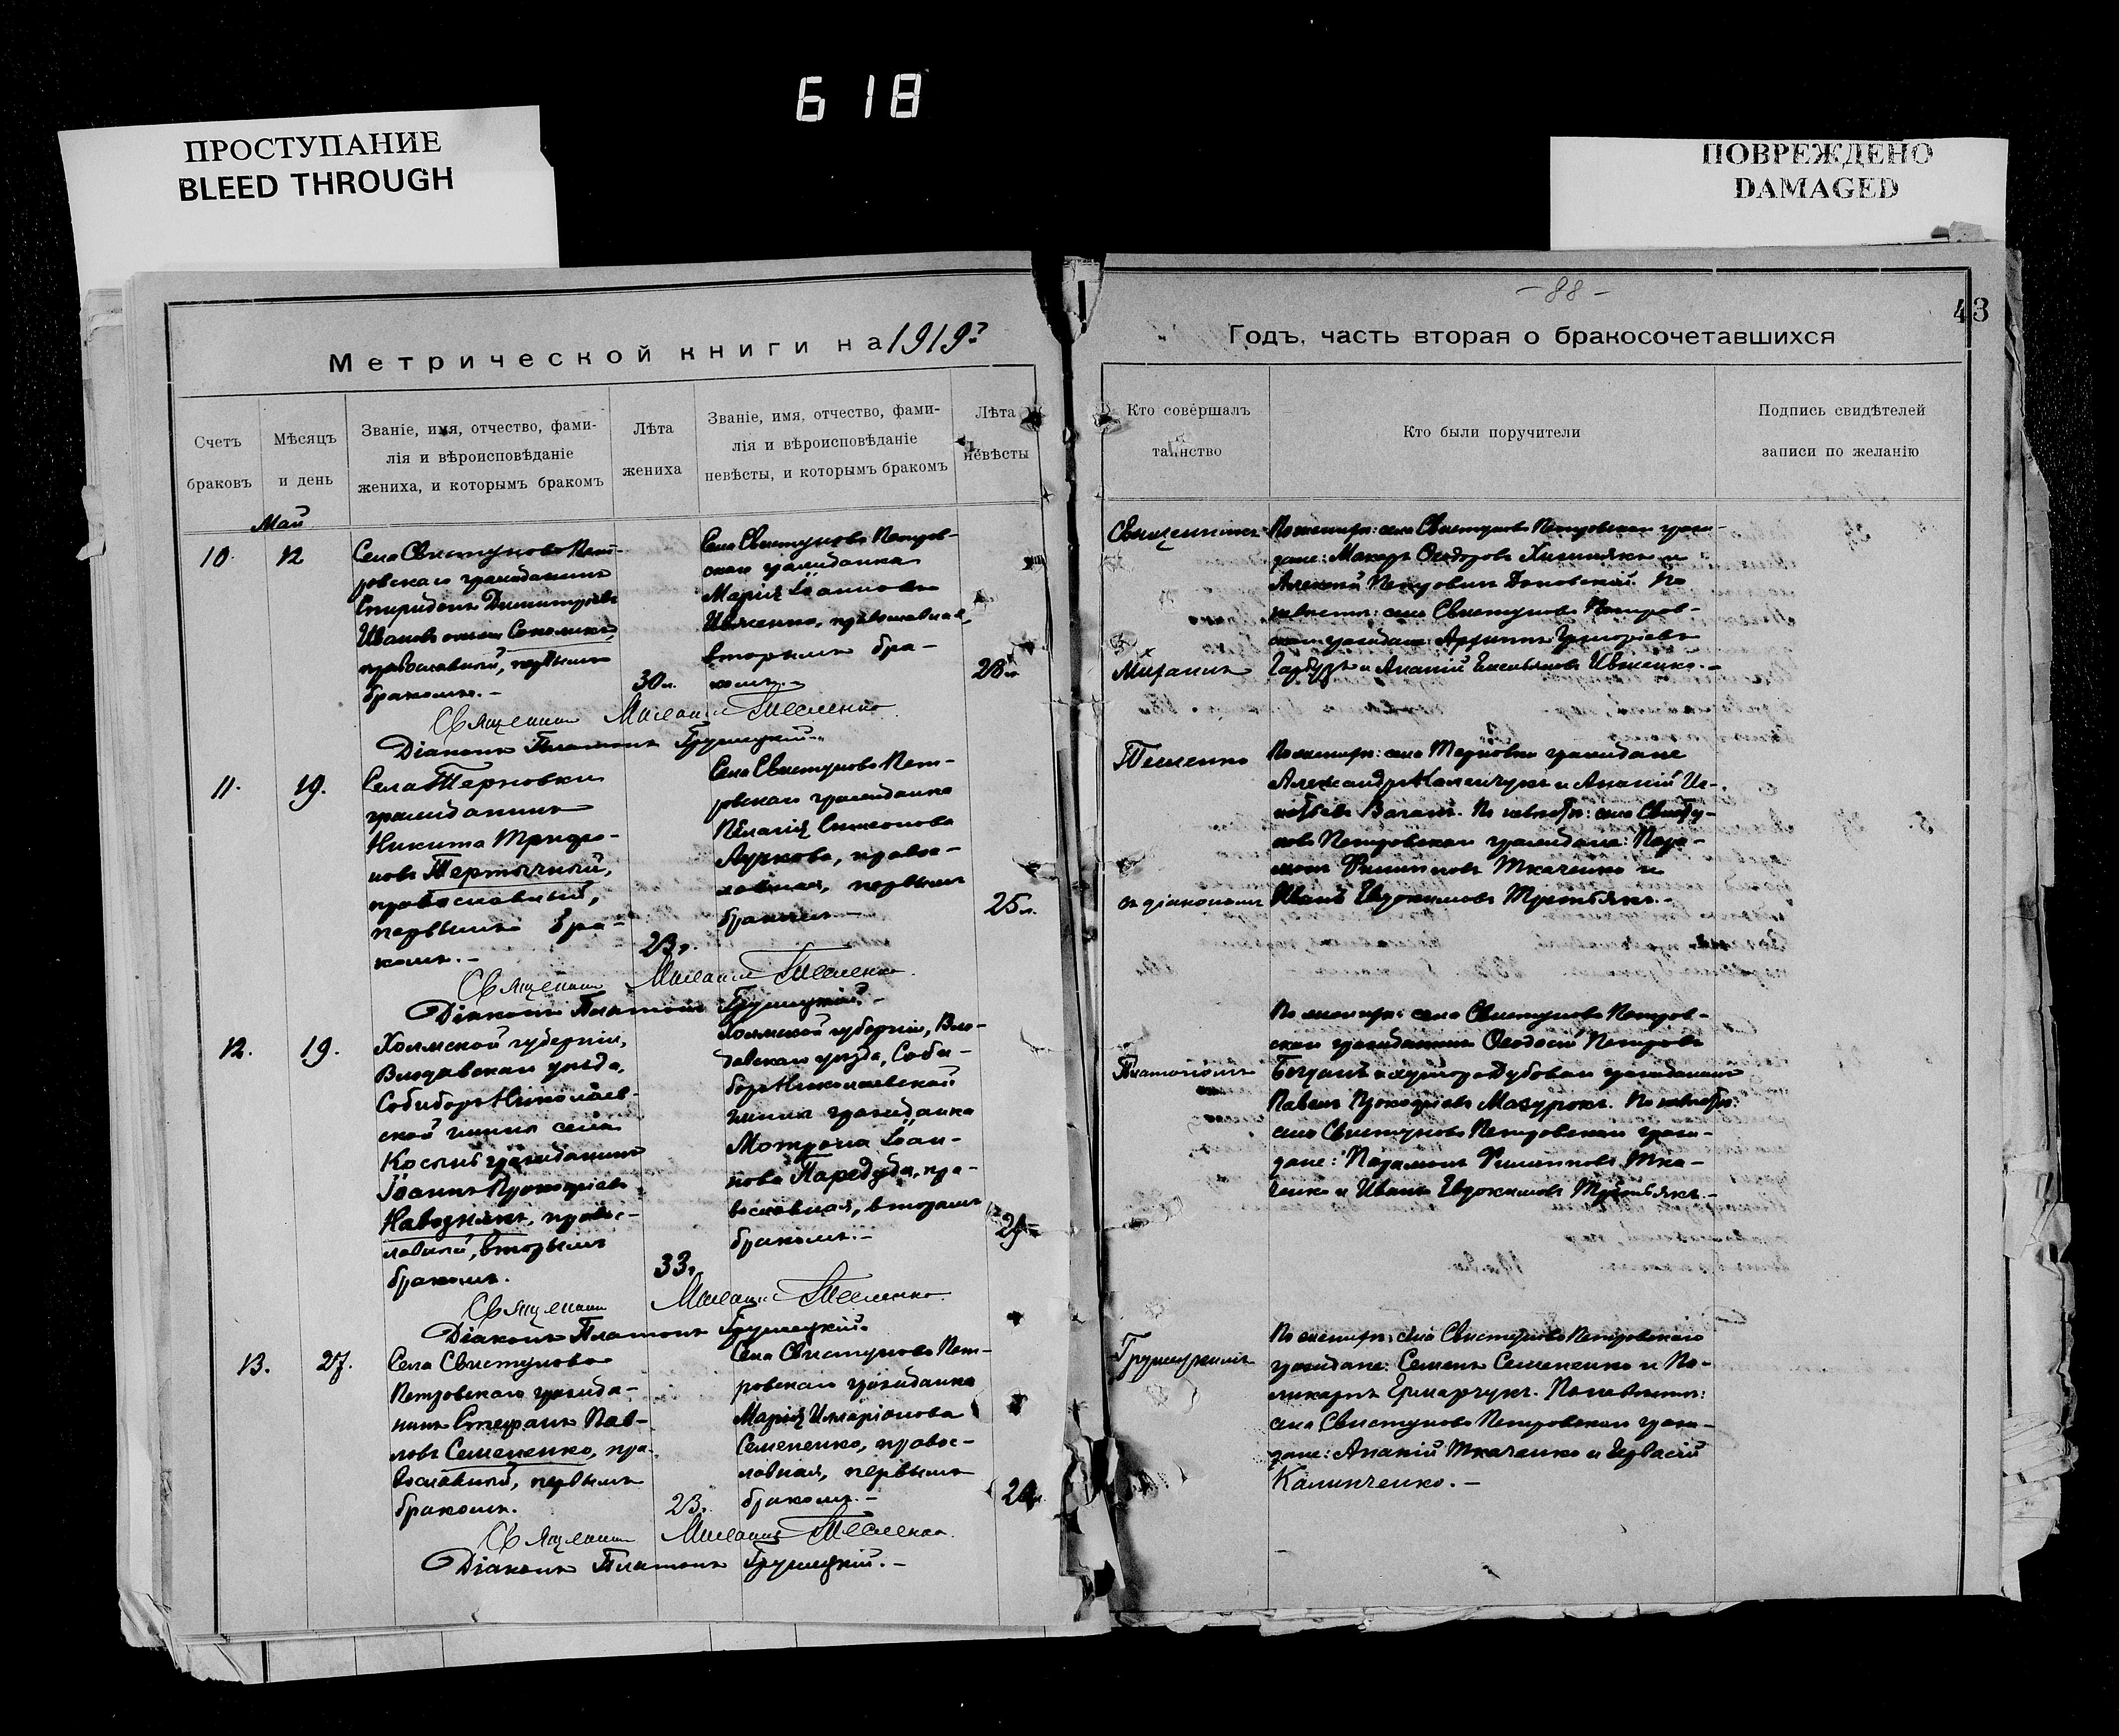 618
ПРОСТУПАНИЕ
BLEED THROUGH
ПОВРЕЖДЕНО
DAMAGED
- 88 -
43
Метрической книги на 1919
Годъ, часть вторая о бракосочетавшихся
Счетъ браковъ
Мѣсяцъ и день
Званіе, имя, отчество, фами-
лія и вѣроисповѣданіе
жениха, и которымъ бракомъ
Лѣта жениха
Званіе, имя, отчество, фами-
лія и вѣроисповѣданіе
невѣсты, и которымъ бракомъ
Лѣта невѣсты
Кто совершалъ таинство
Кто были поручители
Подпись свидѣтелей
записи по желанію
Май
10.
12
Села Свистуново Пет-
ровскаго гражданинъ
Спиридонъ Димитріевъ
Ивановъ Соколикъ,
православный, первымъ
бракомъ.-
30 л.
Села Свистуново Петров-
скаго гражданка
Марія Іоаннова
Ивженко, православная,
вторымъ бра-
комъ.-
28 л.
Священникъ
Михаилъ
По женихѣ: села Свистуново Петровскаго граж-
дане: Макаръ Ѳеодоровъ и
Алексѣй Петровичъ По
невѣстѣ: села Свистуново Петров-
скаго граждане: Архиппъ Григоріевъ
Гарбузъ и Ананій Емельяновъ Ивженко.-
Священникъ Михаилъ Тесленко.
Діаконъ Платонъ Грушецкій.-
11.
19.
Села Терновки
гражданинъ
Никита Трифо-
новъ Терточный,
православный,
первымъ бра-
комъ.-
23 л.
Села Свистуново Пет-
ровскаго гражданка
Пелагія Симеонова
Луркова, правос-
лавная, первымъ
бракомъ.-
25 л.
Тесленко
съ діакономъ
По женихѣ: села Терновки граждане
Александръ и Ананій Иг-
натьевъ По невѣстѣ: села Свисту-
ново Петровскаго граждане: Пара-
монъ Филипповъ Ткаченко и
Иванъ Евдокимовъ Третьякъ.-
Священникъ Михаилъ Тесленко.
Діаконъ Платонъ Грушецкій.-
12.
19.
Холмской губерніи,
Влодавскаго уѣзда,
Собиборъ Николаев-
ской гмины села
Косынь гражданинъ
Іоаннъ Прокофіевъ
Навознякъ, правос-
лавный, вторымъ
бракомъ.
33 л.
Холмской губерніи, Вло-
давскаго уѣзда, Соби-
боръ Николаевской
гмины гражданка
Мотрона Іоан-
нова Паредуба, пра-
вославная, вторымъ
бракомъ.-
29
Платономъ
По женихѣ: села Свистуново Петров-
скаго гражданинъ Ѳеодосій Петровъ
Богданъ и хутора Дубоваго гражданинъ
Павелъ Прокофіевъ Мазурокъ. По невѣстѣ:
села Свистуново Петровскаго граж-
дане: Парамонъ Филипповъ Тка-
ченко и Иванъ Евдокимовъ Третьякъ.-
Священникъ Михаилъ Тесленко.
Діаконъ Платонъ Грушецкій.
13.
27.
Села Свистуново
Петровскаго гражда-
нинъ Стефанъ Пав-
ловъ Семененко, пра-
вославный, первымъ
бракомъ.
23 л.
Села Свистуново Пет-
ровскаго гражданка
Марія Иларіонова
Семененко, правос-
лавная, первымъ
бракомъ.-
Грушецкимъ
По женихѣ: села Свистуново Петровскаго
граждане: Семенъ Семененко и По-
ликарпъ Ермарчукъ. По невѣстѣ:
села Свистуново Петровскаго граж-
дане: Ананій Ткаченко и
Калиниченко.-
Священникъ Михаилъ Тесленко.
Діаконъ Платонъ Грушецкій.-